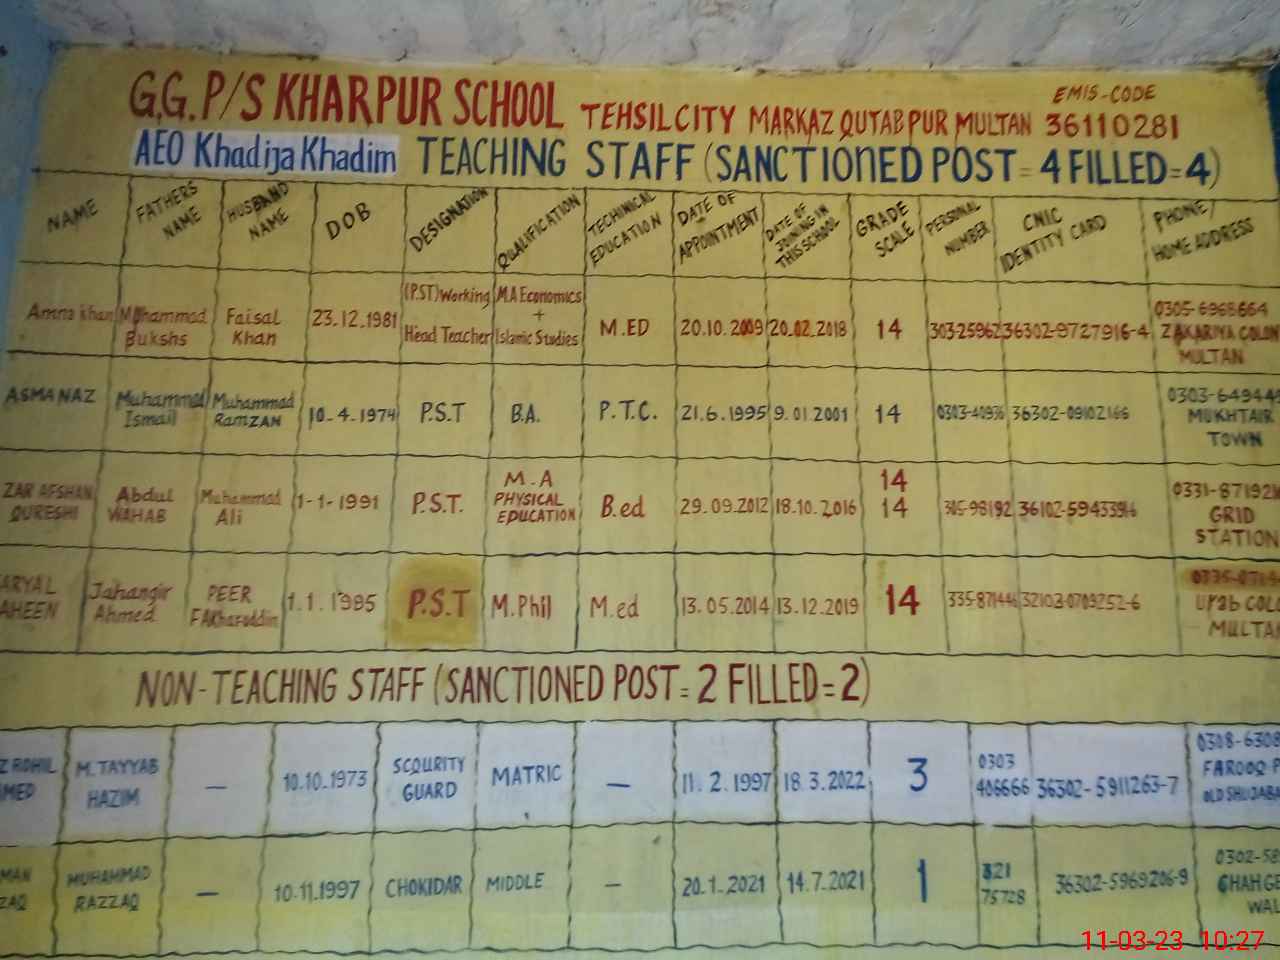 G.G.P/S KHARPUR SCHOOL TEHSIL CITY MARKAZ QUTABPUR MULTAN EMIS-CODE 36110281
AEO Khadija Khadim TEACHING STAFF (SANCTIONED POST = 4 FILLED = 4)
NAME FATHERS NAME HUSBAND NAME DOB DESIGNATION QUALIFICATION TECHINICAL EDUCATION DATE OF APPOINTMENT DATE OF JOINING IN THIS SCHOOL GRADE SCALE PERSONAL NUMBER CNIC IDENTITY CARD PHONE/ HOME ADDRESS
Amna Khan Muhammad Bukshs Faisal Khan 23.12.1981 (P.ST) Working Head Teacher M.A Economics + Islamic Studies M.ED 20.10.2009 20.02.2018 14 303-25962 36302-9727916-4 ZAKARIYA COLON MULTAN
ASMA NAZ Muhammad Ismail Muhammad RamZAN 10-4.1974 P.S.T B.A. P.T.C. 21.6.1995 9.01.2001 14 36302-09102166 0303-64944 MUKHTAIR TOWN
ZAR AFSHAN QURESHI Abdul WAHAB Muhammad Ali 1-1-1991 P.S.T. M.A PHYSICAL EDUCATION B.ed 29.09.2012 18.10.2016 14 14 305-98192 0331-87192 GRID STATION
ARYAL AHEEN Jahangir Ahmed PEER FAkharuddin 1.1.1985 P.S.T M.Phil M.ed 13.05.2014 13.12.2019 14 32103-0709252-6 COL MULTA
NON-TEACHING STAFF (SANCTIONED POST = 2 FILLED = 2)
Z ROHIL MED M. TAYYAB HAZIM — 10.10.1973 SCQURITY GUARD MATRIC — 11.2.1997 18.3.2022 3 0303 406666 36302-5911263-7 0308-6308 FAROOQ P OLD SHUJABA
MAN ZAQ MUHAMMAD RAZZAQ — 10.11.1997 CHOKIDAR MIDDLE — 20.1.2021 14.7.2021 1 321 75728 36302-5969206-9 0302-58 CHAH GE WAL
11-03-23 10:27